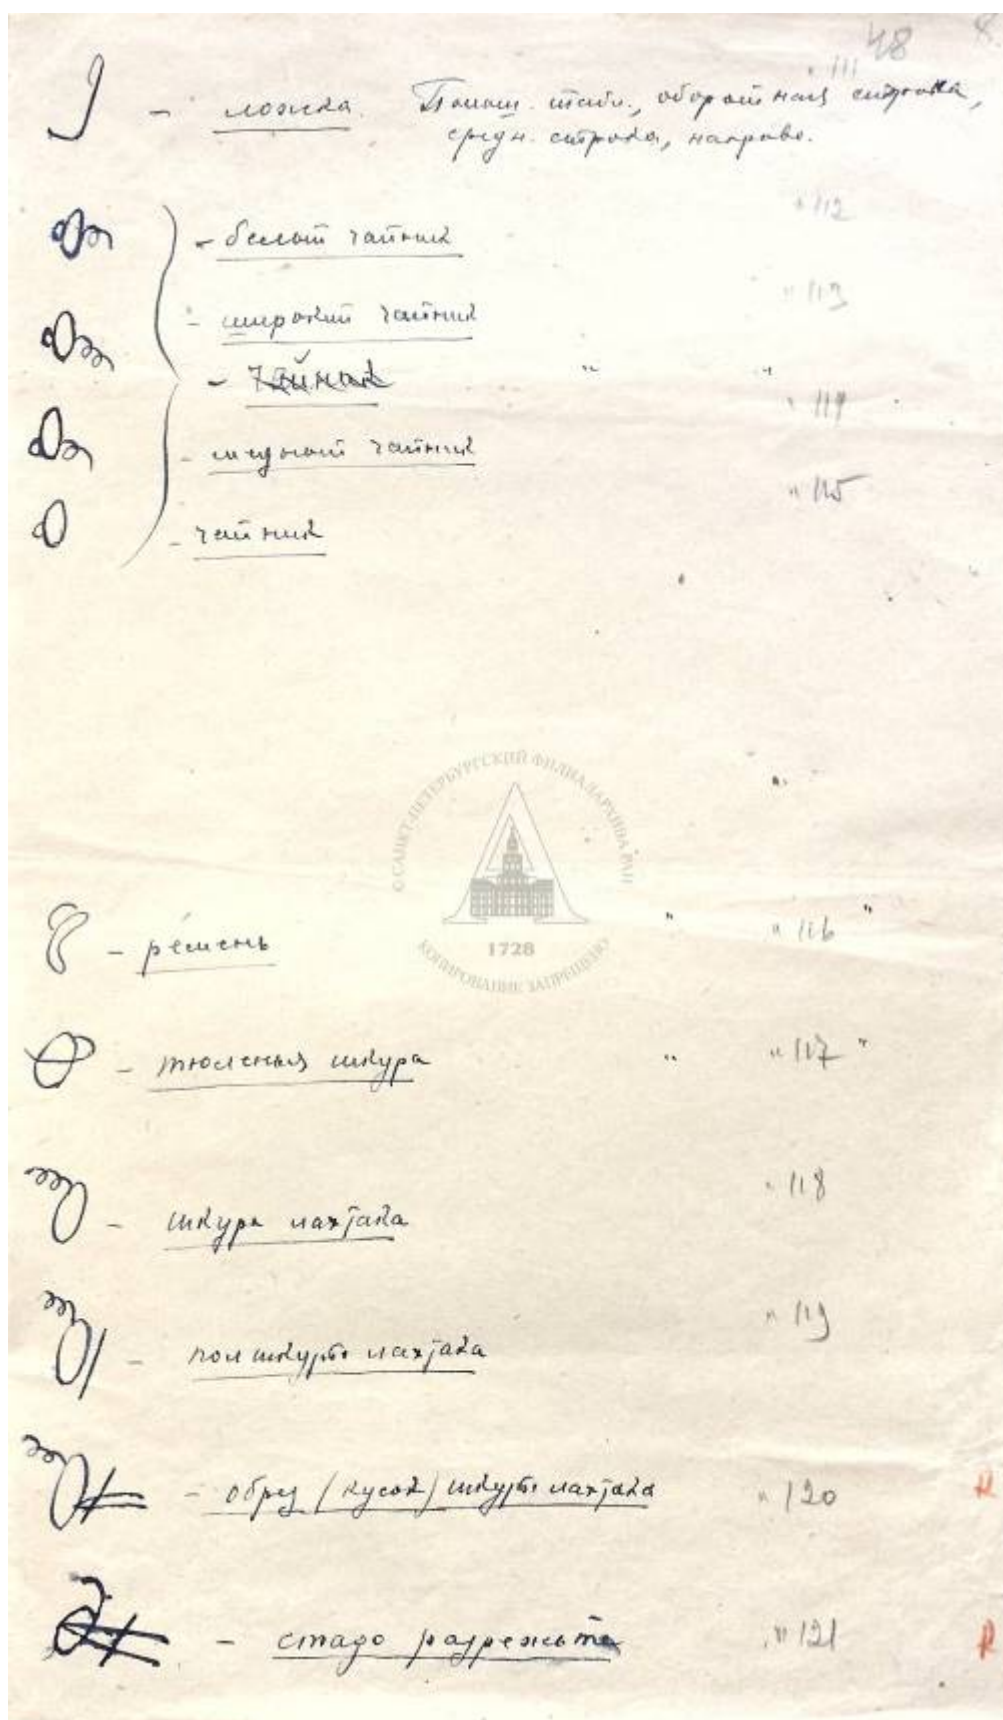 48
" 111
– ложка. Помощ. табл., оборотная сторона,
средн. строка, направо.
" 112
– белый чайник
" 113
– широкий чайник
– чайник " "
" 114
– медный чайник
" 115
– чайник
© САНКТ-ПЕТЕРБУРГСКИЙ ФИЛИАЛ АРХИВА РАН
1728
КОПИРОВАНИЕ ЗАПРЕЩЕНО
– ремень " " 116 "
– тюленья шкура " " 117 "
" 118
– шкура лахтака
" 119
– пол шкуры лахтака
– обрез (кусок) шкуры лахтака " 120
– стадо разрежьте " 121